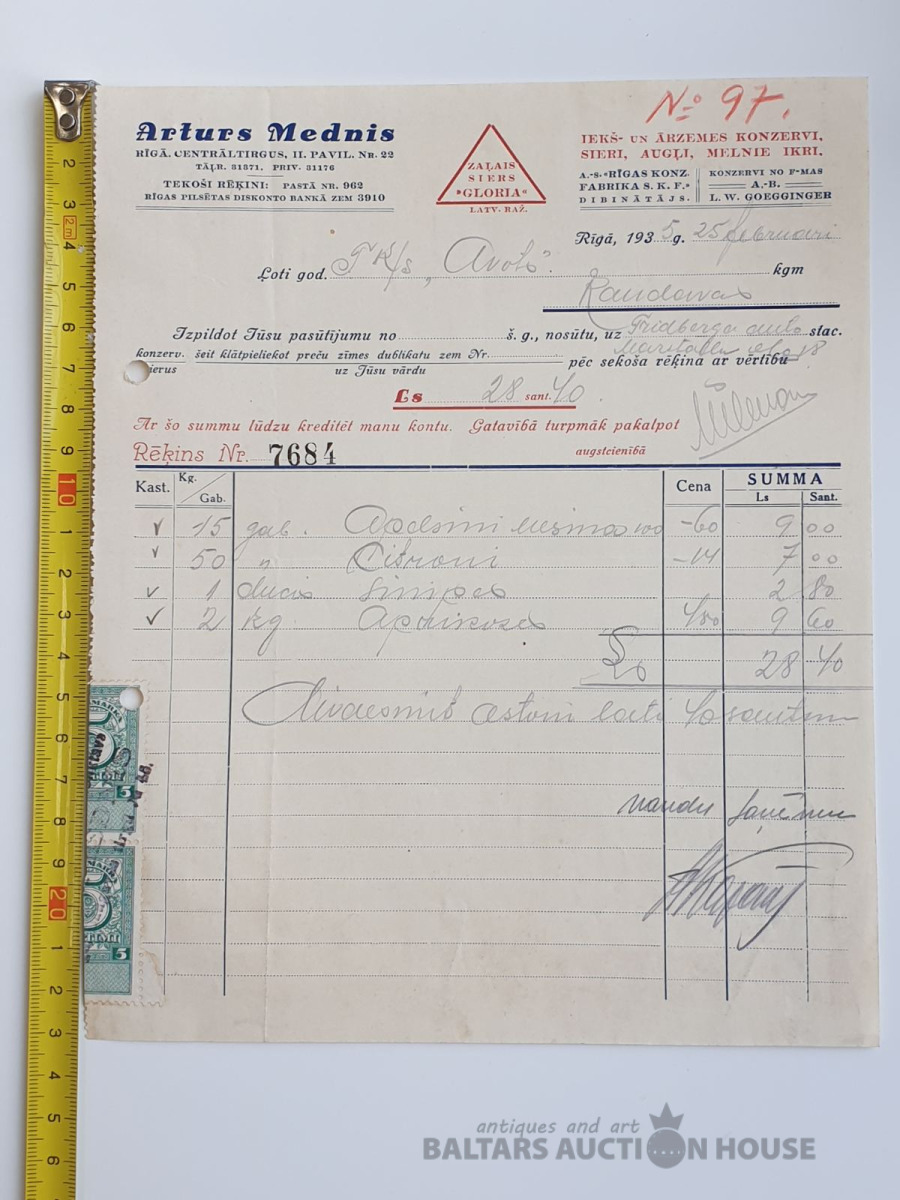 Nº 97.
Arturs Mednis
RĪGĀ, CENTRĀLTIRGUS, II. PAVIL. NR. 22
TĀĻR. 31371, PRIV. 31176
TEKOŠI RĒĶINI: PASTĀ NR. 962
RĪGAS PILSĒTAS DISKONTO BANKĀ ZEM 3910
ZAĻAIS
SIERS
"GLORIA"
LATV. RAŽ.
IEKŠ- UN ĀRZEMES KONZERVI,
SIERI, AUGĻI, MELNIE IKRI.
A.-S. «RĪGAS KONZ. FABRIKA S. K. F.» DIBINĀTĀJS.
KONZERVI NO F-MAS A.-B. L. W. GOEGGINGER
Rīgā, 1935 g. 25 februari
Ļoti god. "Avots". kgm
Kandavas
Izpildot Jūsu pasūtījumu no š. g., nosūtu, uz stac.
konzerv. šeit klātpieliekot preču zīmes dublikatu zem Nr. pēc sekoša rēķina ar vērtību
ierus uz Jūsu vārdu
Ls 28 sant. 40
Ar šo summu lūdzu kreditēt manu kontu. Gatavībā turpmāk pakalpot
augstcienībā
Rēķins Nr. 7684
Kast. Kg. Gab. Cena SUMMA
Ls Sant.
15 gab. Apelsini -60 9 00
50 " Citroni -14 7 00
1 ducis 2 80
2 kg 4 80 9 60
Ls 28 40
Divdesmit astoni lati 40 santim
naudu saņēmu
5
5
2 3 2m 4 5 6 7 8 9 10 1 2 3 4 5 6 7 8 9 20 1 2 3 4 5 6
antiques and art
BALTARS AUCTION HOUSE